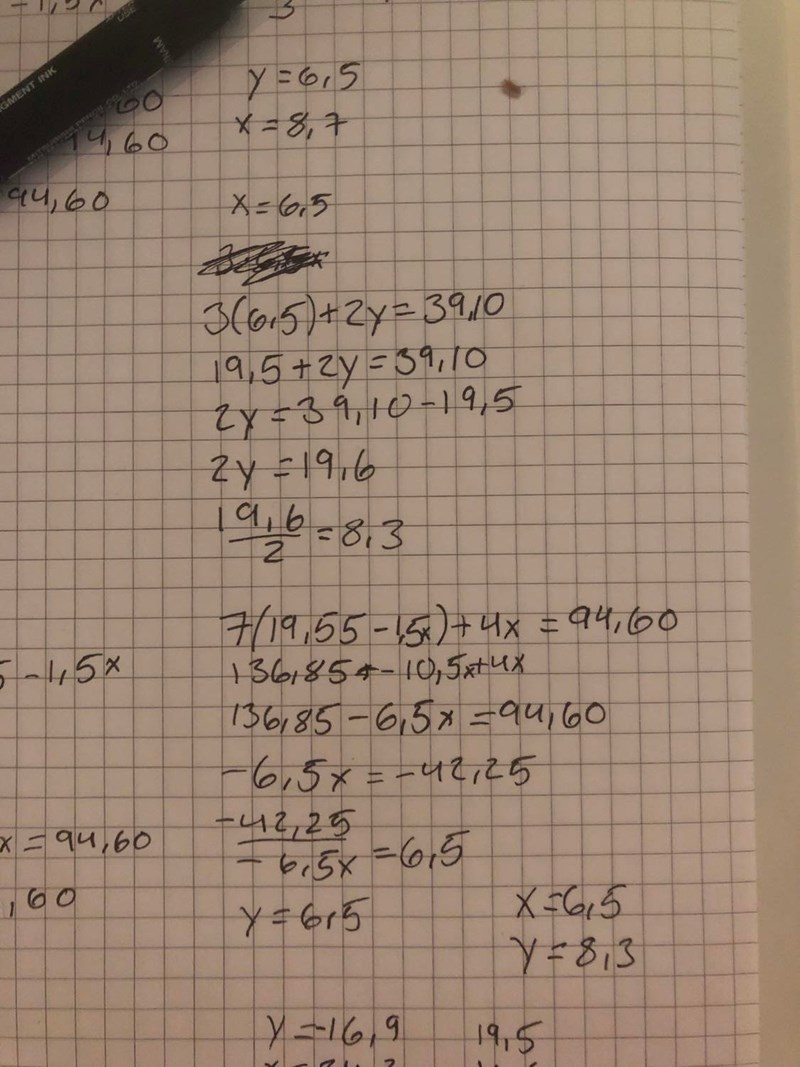 -1,5x
3
GMENT INK
y=6,5
,60
x=8,7
94,60
94,60
x=6,5
3(6,5)+2y=39,10
19,5+2y=39,10
2y=39,10-19,5
2y=19,6
19,6/2=8,3
7(19,55-1,5x)+4x=94,60
5-1,5x
136,85+-10,5x+4x
136,85-6,5x=94,60
-6,5x=-42,25
x=94,60
-42,25/-6,5x=6,5
,60
y=6,5
x=6,5
y=8,3
y=-16,9
19,5